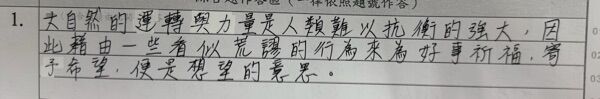 1. 大自然的運轉與力量是人類難以抗衡的強大,因
此藉由一些看似荒謬的行為來為好事祈福,寄
予希望,便是想望的意思。